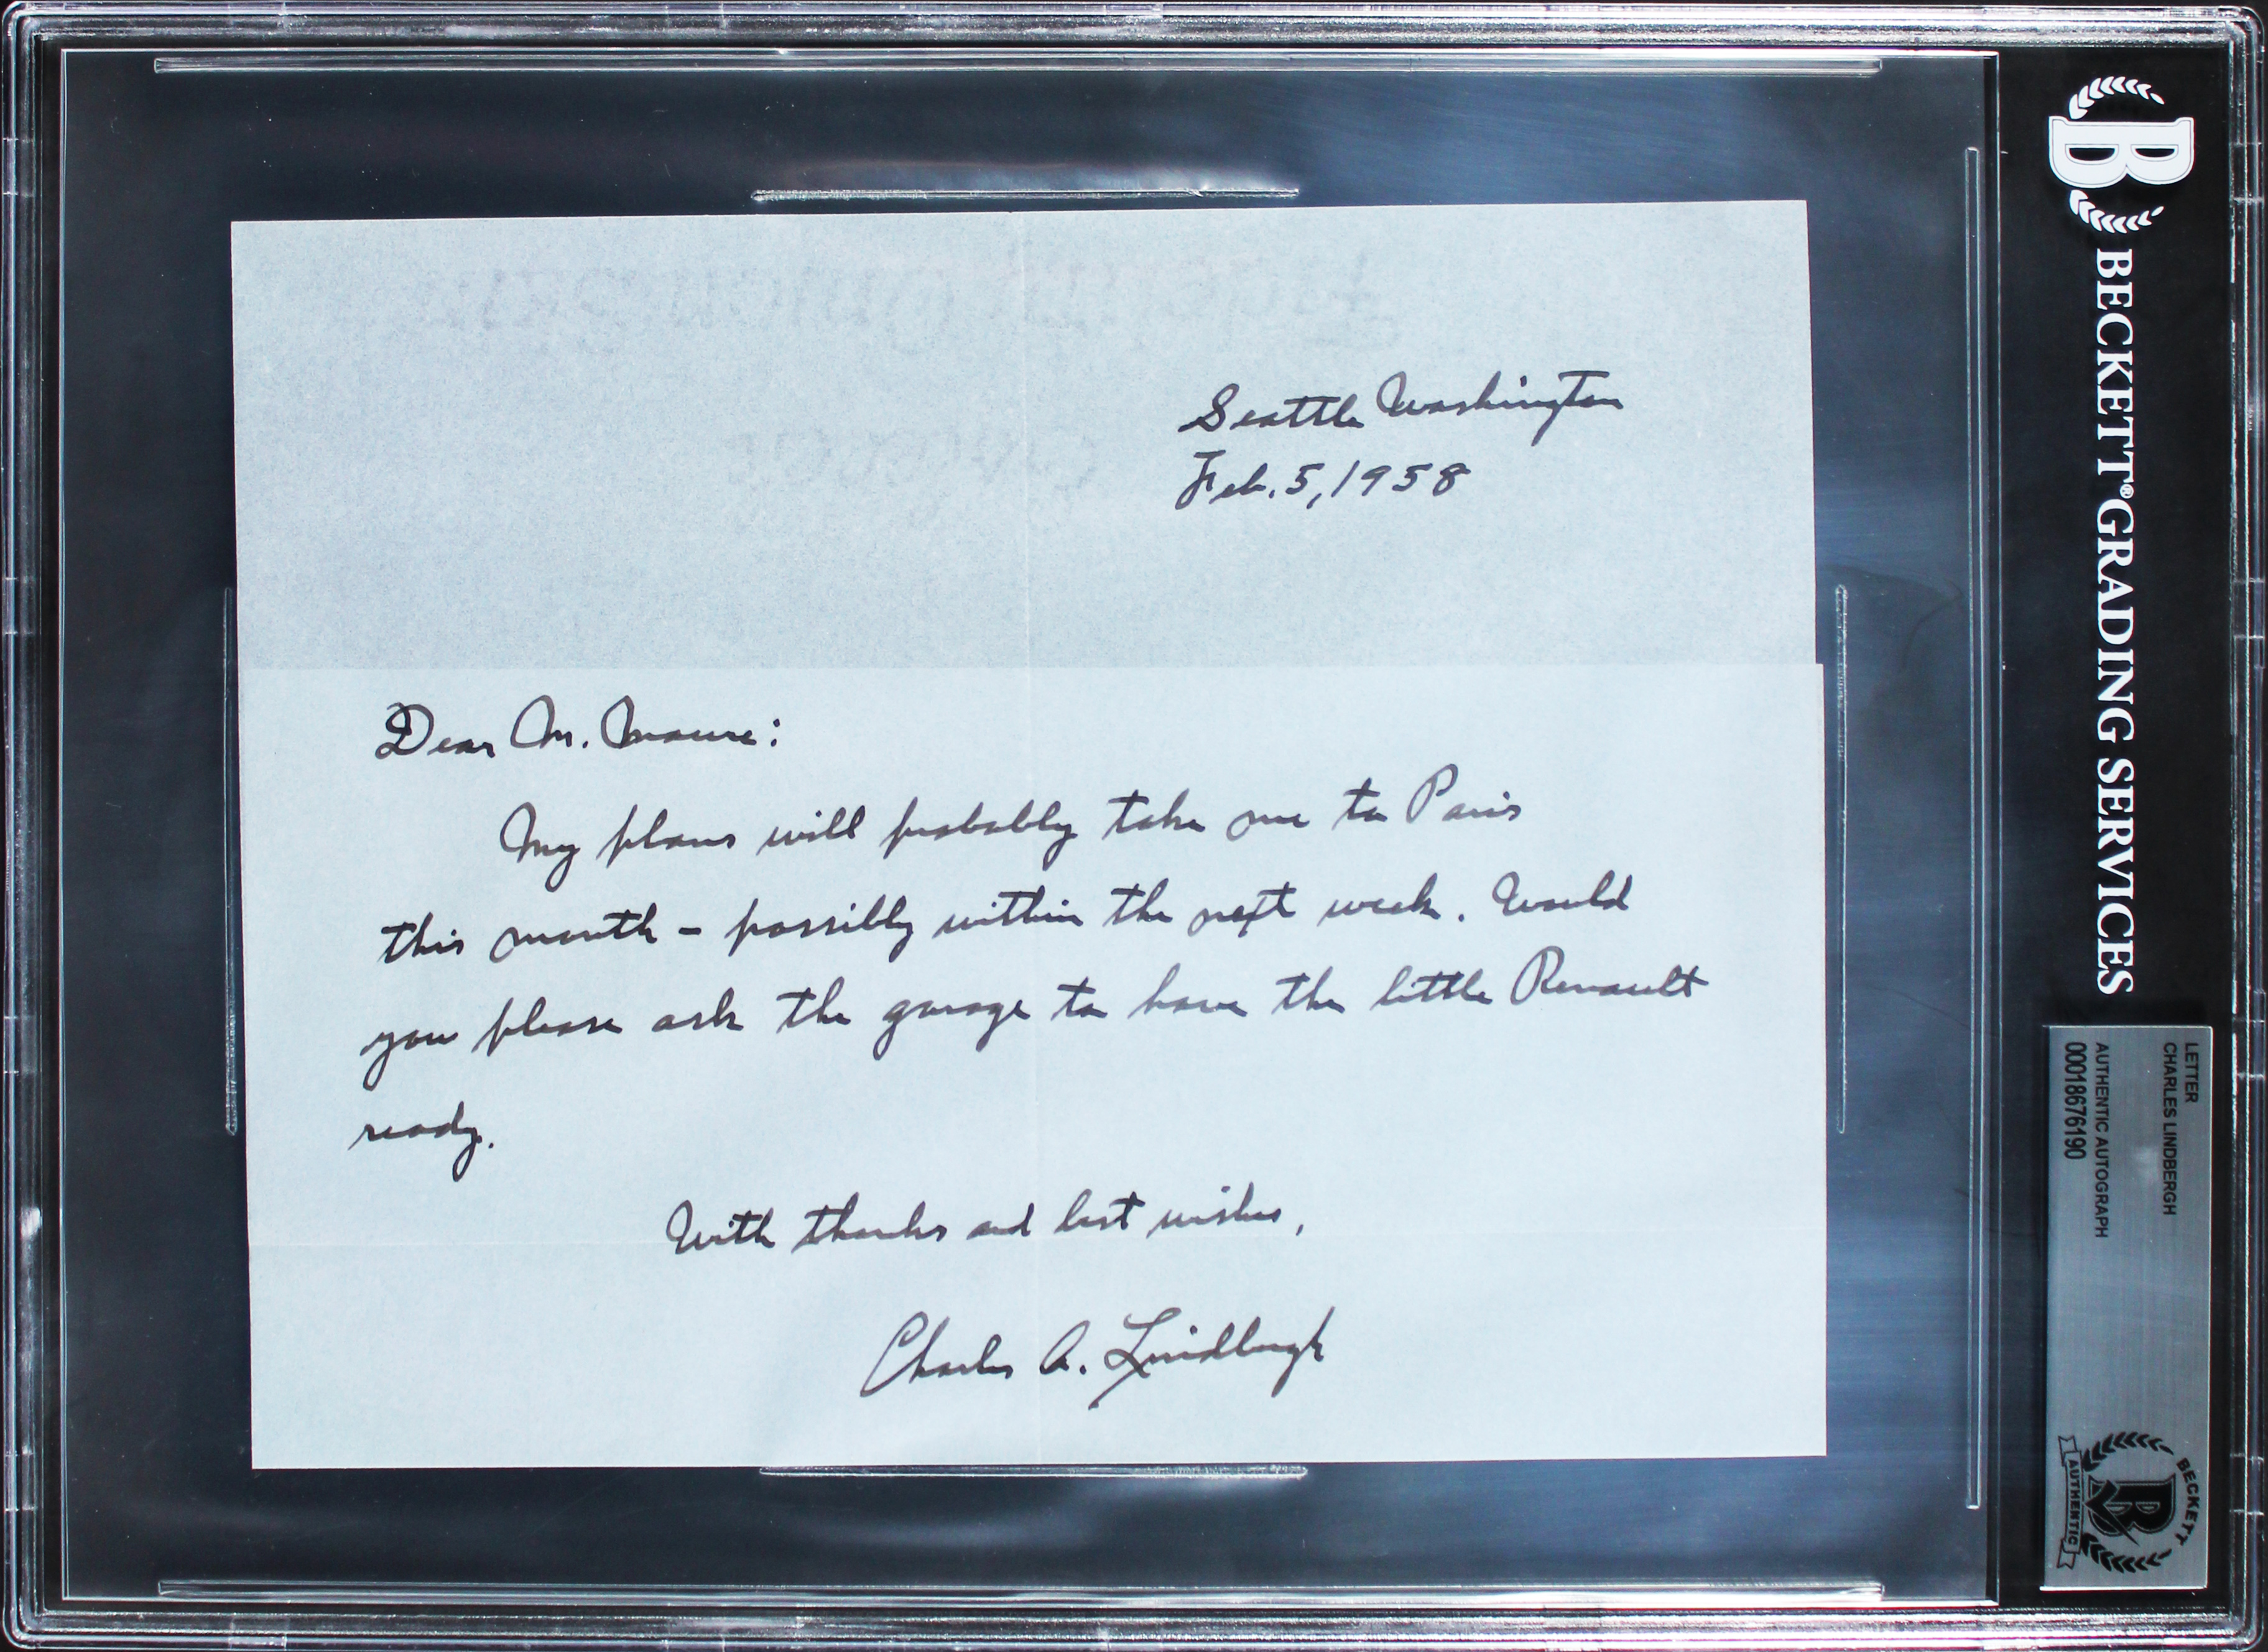 Seattle Washington
Feb. 5, 1958
Dear M.
My plans will probably take me to Paris
this month - possibly within the next week. Would
you please ask the garage to have the little Renault
ready.
With thanks and best wishes,
Charles A. Lindbergh
B
BECKETT® GRADING SERVICES
LETTER
CHARLES LINDBERGH
AUTHENTIC AUTOGRAPH
00018676190
BECKETT
B
AUTHENTIC